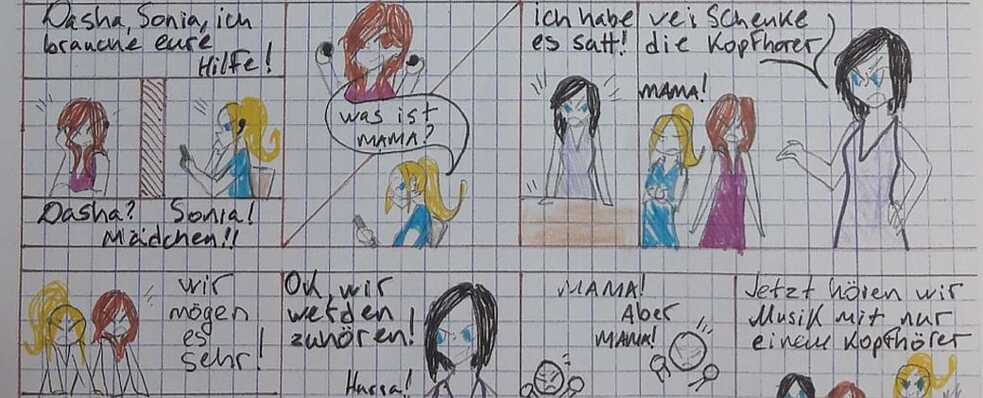 Dasha, Sonia, ich
brauche eure
Hilfe!
Dasha? Sonia!
Mädchen!!
was ist
MAMA?
ich habe vei Schenke
es satt! die Kopfhorer
MAMA!
wir
mögen
es
sehr!
OK, wir
werden
zuhören!
Hurra!
MAMA!
Aber
MAMA!
Jetzt hören wir
Musik mit nur
einem Kopfhörer